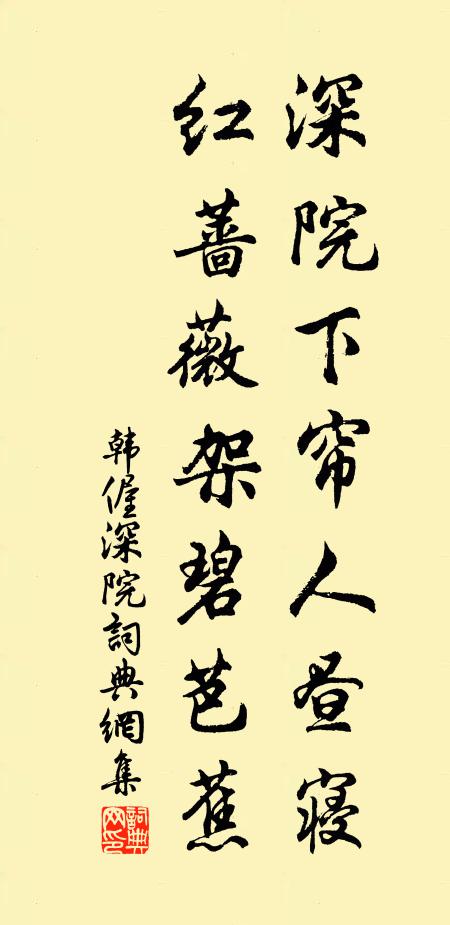 深院下帘人昼寝
红蔷薇架碧芭蕉
韩偓深院词典網集
詞典网印